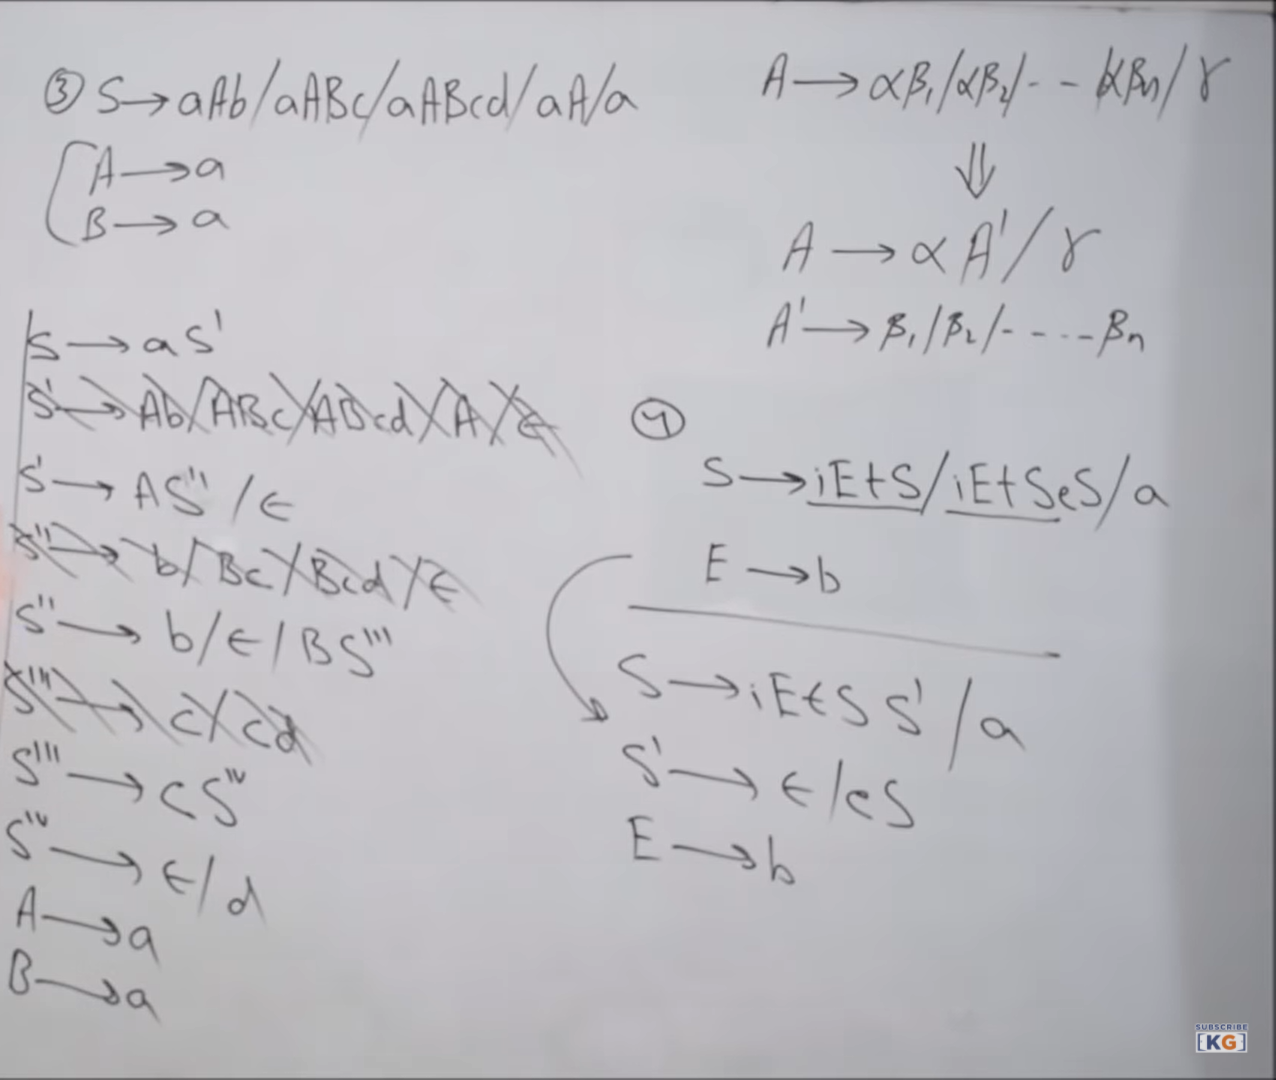 ③ S → aAb/aABc/aABcd/aA/a
A → a
B → a
S → aS'
S' → Ab/ABc/ABcd/A/ϵ
S' → AS''/ϵ
S'' → b/Bc/Bcd/ϵ
S'' → b/ϵ/BS'''
S''' → c/cd
S''' → cS'ᵛ
S'ᵛ → ϵ/d
A → a
B → a
A → αβ₁/αβ₂/-- αβn/γ
⇓
A → αA'/γ
A' → β₁/β₂/-----βn
④
S → iEtS/iEtSeS/a
E → b
S → iEtSS'/a
S' → ϵ/eS
E → b
SUBSCRIBE
[KG]